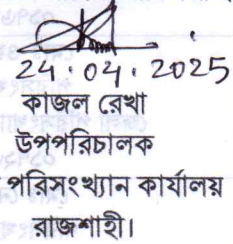 24.04.2025
কাজল রেখা
উপপরিচালক
পরিসংখ্যান কার্যালয়
রাজশাহী।